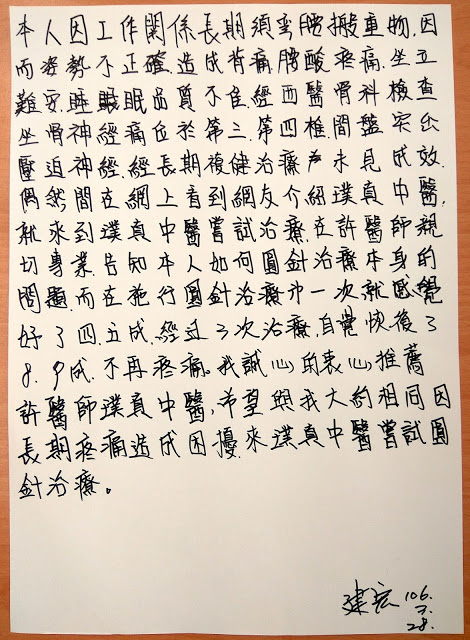 本人因工作關係長期須彎腰搬重物,因
而姿勢不正確造成背痛腰酸疼痛.坐立
難安.睡眠品質不佳.經西醫骨科檢查
坐骨神經痛位於第三.第四椎間盤突出
壓迫神經.經長期復健治療 未見成效.
偶然間在網上看到網友介紹璞真中醫,
就來到璞真中醫嘗試治療.在許醫師親
切專業.告知本人如何圓針治療本身的
問題.而在施行圓針治療中一次就感覺
好了四.五成.經过3次治療,自覺恢復了
8.9成.不再疼痛。我誠心的衷心推薦
許醫師璞真中醫,希望與我大約相同因
長期疼痛造成困擾.來璞真中醫嘗試圓
針治療。
建宏 106.
3.
28.